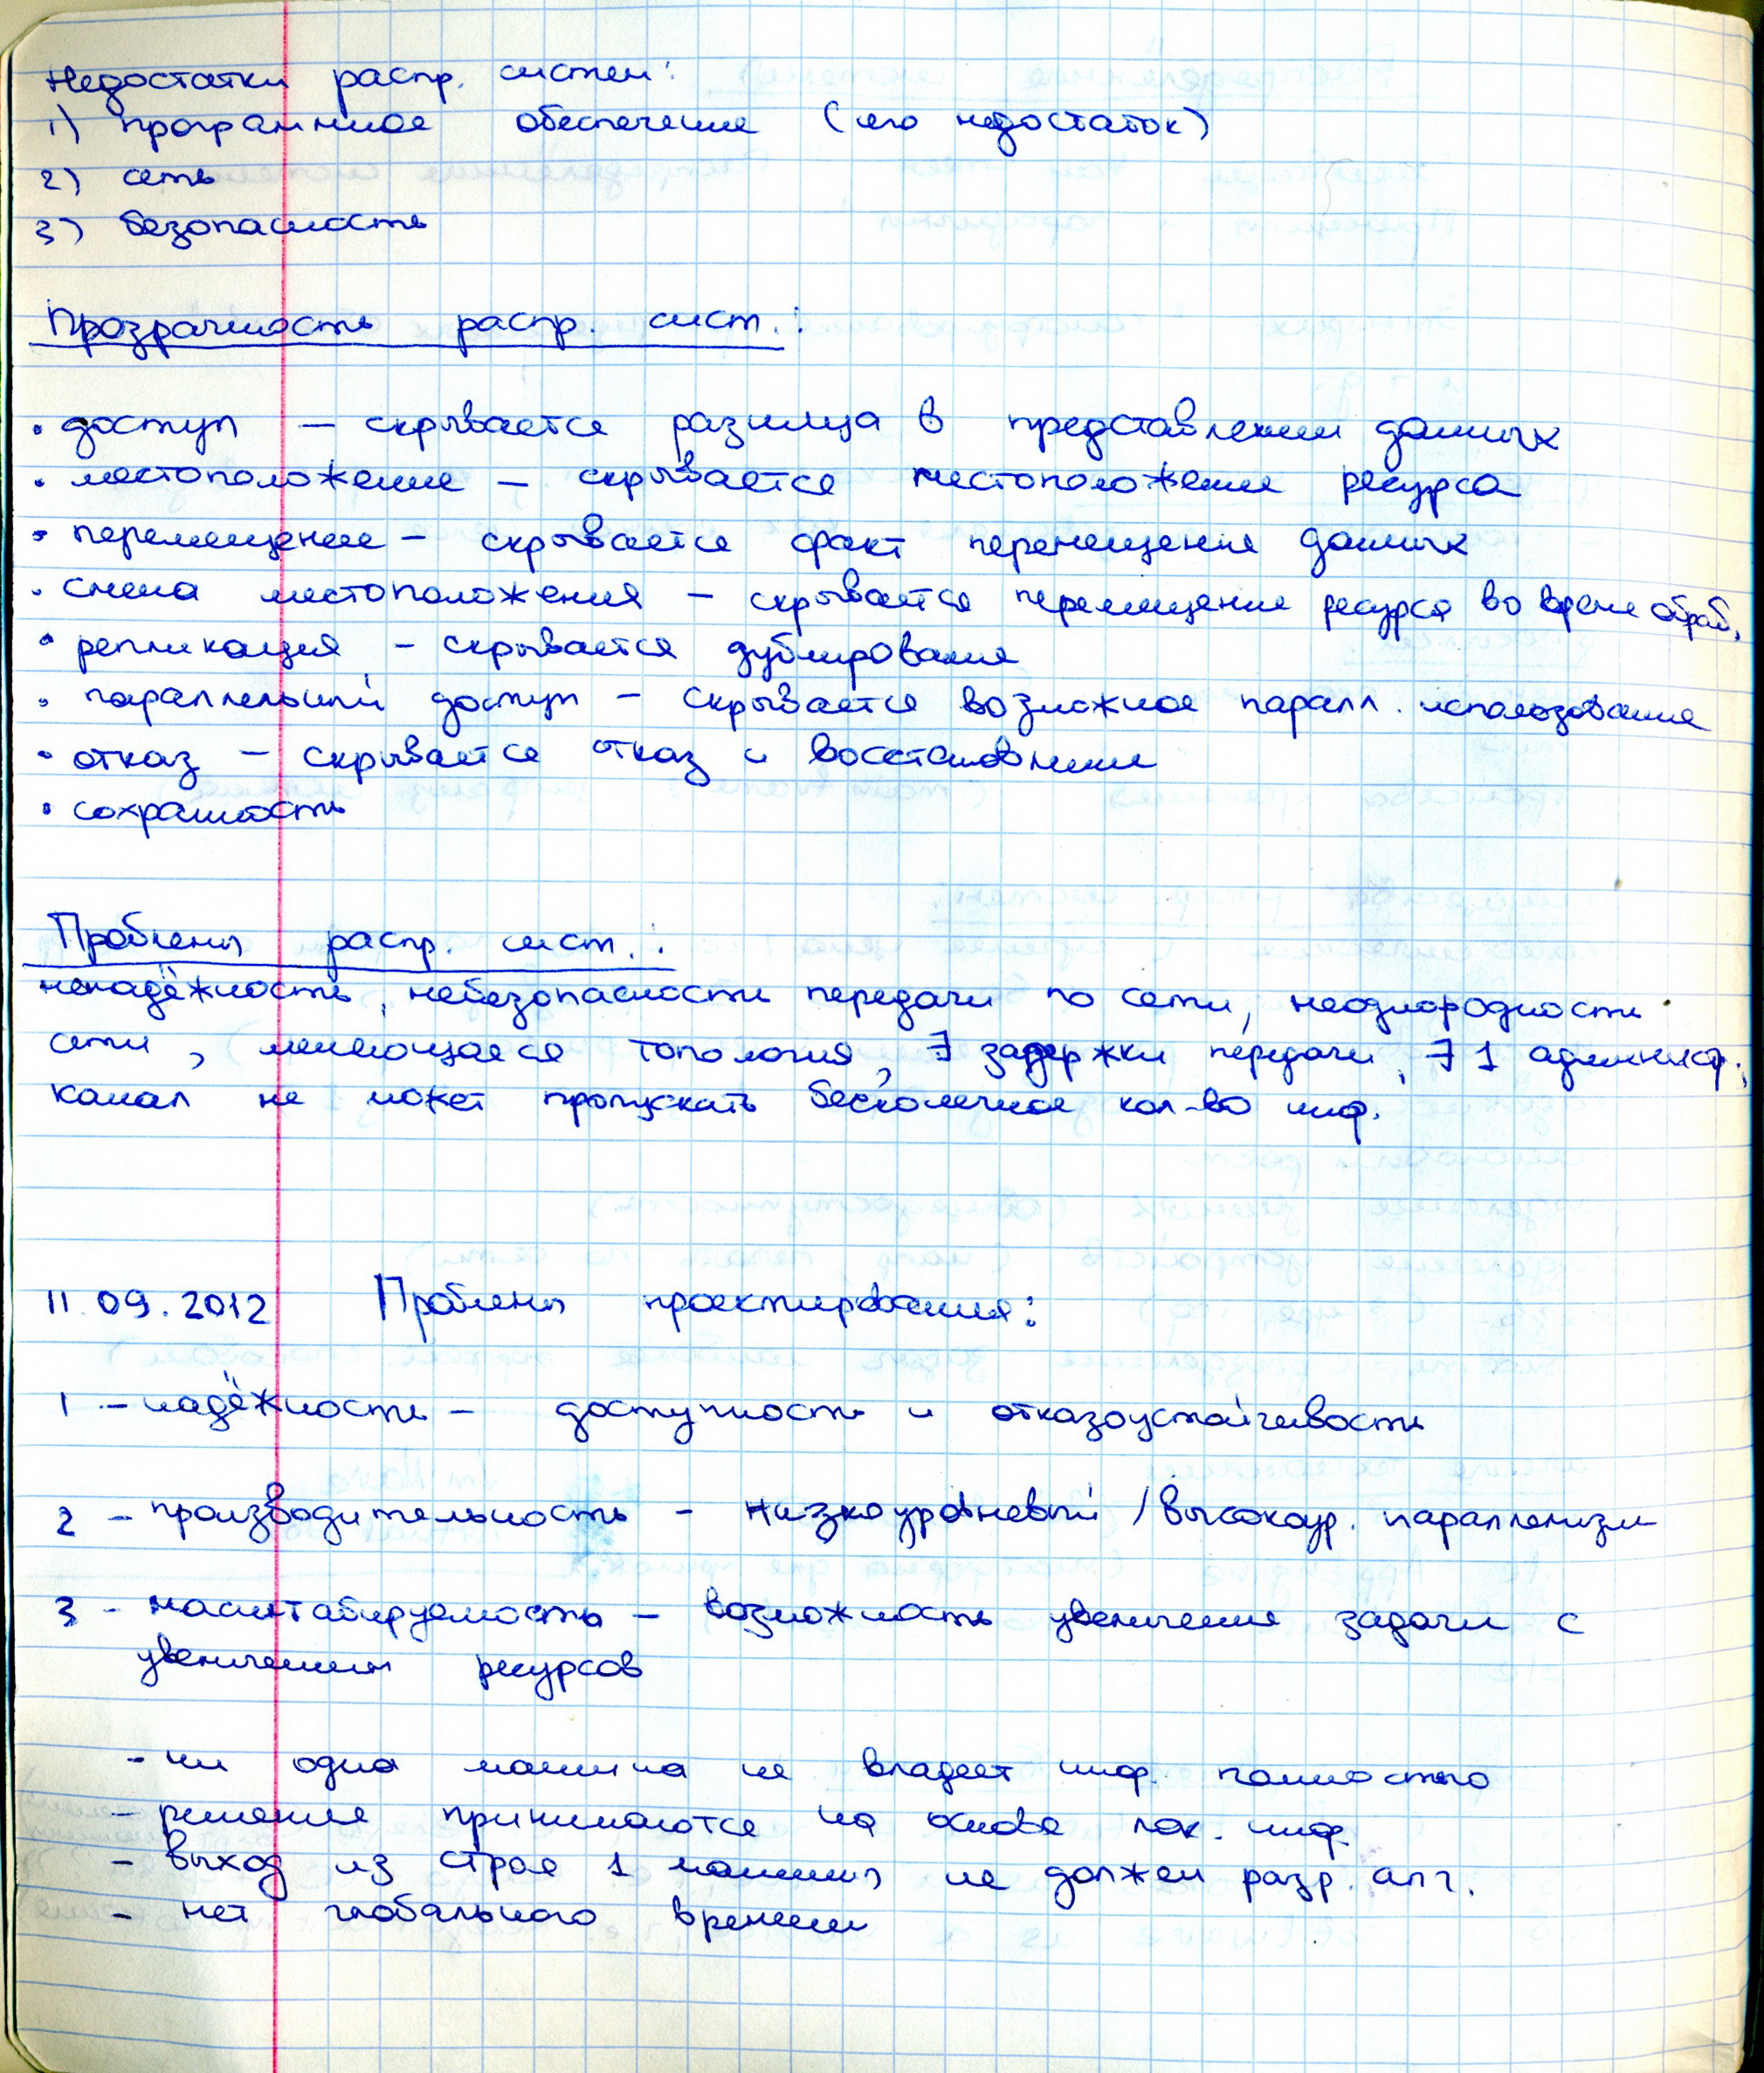 Недостатки распр. систем:
1) программное обеспечение (его недостаток)
2) сеть
3) безопасность
Прозрачность распр. сист.:
• доступ – скрывается разница в представлении данных
• местоположение – скрывается местоположение ресурса
• перемещение – скрывается факт перемещения данных
• смена местоположения – скрывается перемещение ресурса во время обраб.
• репликация – скрывается дублирование
• параллельный доступ – скрывается возможное паралл. использование
• отказ – скрывается отказ и восстановление
• сохранность
Проблемы распр. сист.:
ненадёжность, небезопасность передачи по сети, неоднородность
сети, меняющаяся топология, ∃ задержки передачи, ∃ 1 администр.,
канал не может пропускать бесконечное кол-во инф.
11.09.2012 Проблемы проектирования:
1 – надёжность – доступность и отказоустойчивость
2 – производительность – низкоуровневый / высокоур. параллелизм
3 – масштабируемость – возможность увеличения задачи с
увеличением ресурсов
– ни одна машина не владеет инф. полностью
– решения принимаются на основе лок. инф.
– выход из строя 1 машины не должен разр. алг.
– нет глобального времени